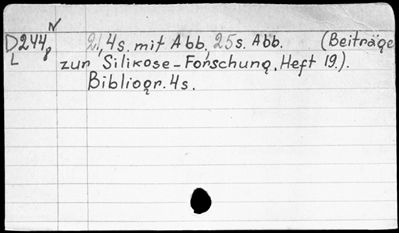 N
D244g 21, 4s. mit Abb., 25s. Abb. (Beiträge
L zur Silikose-Forschung, Heft 19.).
Bibliogr. 4s.